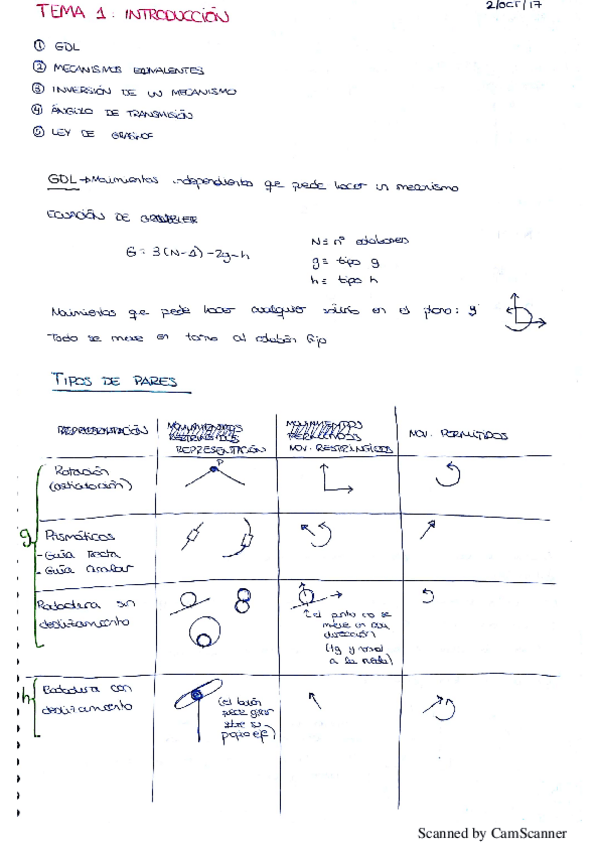 TEMA 1: INTRODUCCIÓN
2/OCT/17
① GDL
② MECANISMOS EQUIVALENTES
③ INVERSIÓN DE UN MECANISMO
④ ÁNGULO DE TRANSMISIÓN
⑤ LEY DE GRASHOF
GDL → Movimientos independientes que puede hacer un mecanismo
ECUACIÓN DE GRUBLER
G = 3(N-1) - 2g - h
N ≡ nº eslabones
g ≡ tipo g
h ≡ tipo h
Movimientos que puede hacer cualquier sólido en el plano: 3
Todo se mueve en torno al eslabón fijo
TIPOS DE PARES
REPRESENTACIÓN
MOVIMIENTOS RESTRINGIDOS
REPRESENTACIÓN
MOVIMIENTOS PERMITIDOS
MOV. RESTRINGIDOS
MOV. PERMITIDOS
g
Rotación
(articulación)
P
Prismáticos
- Guía recta
- Guía circular
Rodadura sin
deslizamiento
el punto no se
mueve en esa
dirección
(tg y normal
a la rueda)
h
Rodadura con
deslizamiento
(el bulón
puede girar
sobre su
propio eje)
Scanned by CamScanner